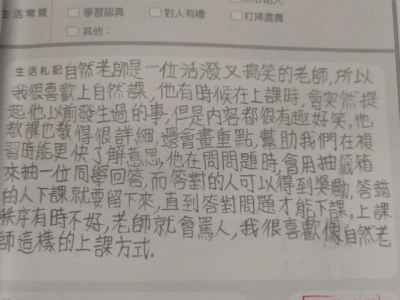 生活常規
學習認真
對人有禮
打掃盡責
其他：
生活札記 自然老師是一位活潑又搞笑的老師，所以
我很喜歡上自然課，他有時候在上課時，會突然提
起他以前發生過的事，但是內容都很有趣好笑，他
教課也教得很詳細，還會畫重點，幫助我們在複
習時能更快了解意思，他在問問題時，會用抽籤箱
來抽一位同學回答，而答對的人可以得到獎勵，答錯
的人下課就要留下來，直到答對問題才能下課，上課
秩序有時不好，老師就會罵人，我很喜歡像自然老
師這樣的上課方式。